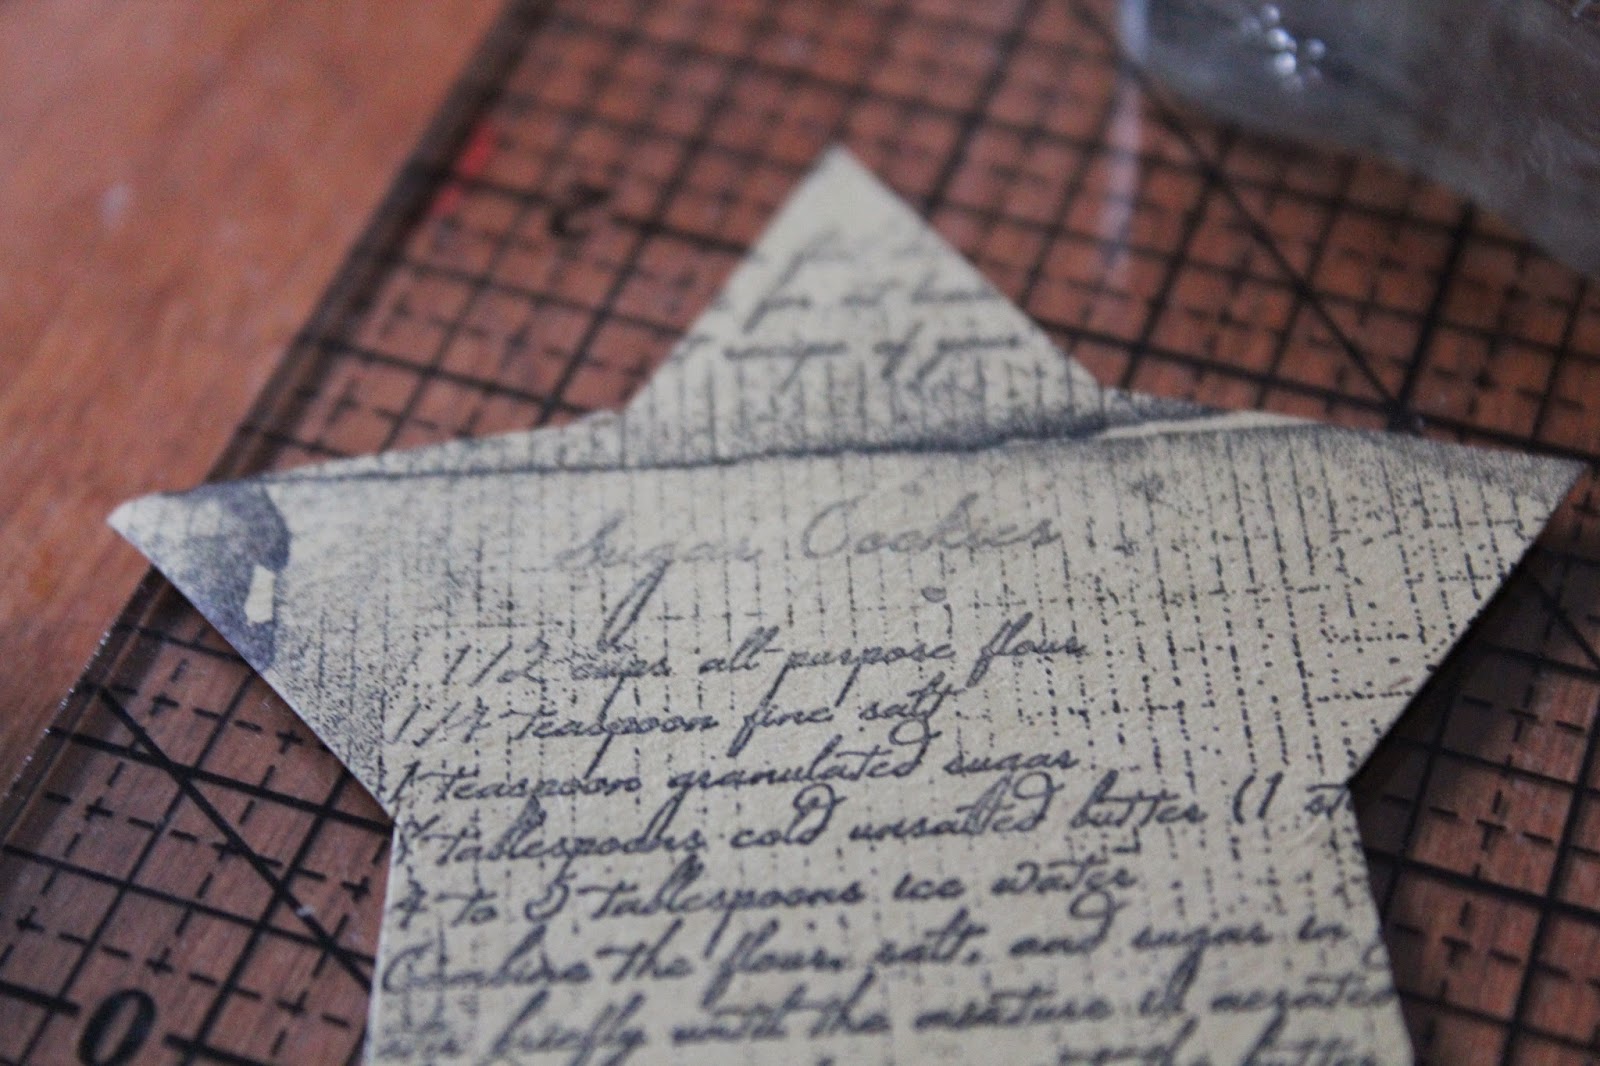 2
Sugar Cookies
1 1/2 cups all-purpose flour
1/4 teaspoon fine salt
1 teaspoon granulated sugar
7 tablespoons cold unsalted butter (1 st
4 to 5 tablespoons ice water
Combine the flour, salt, and sugar in
briefly until the mixture is aerated
butter
0